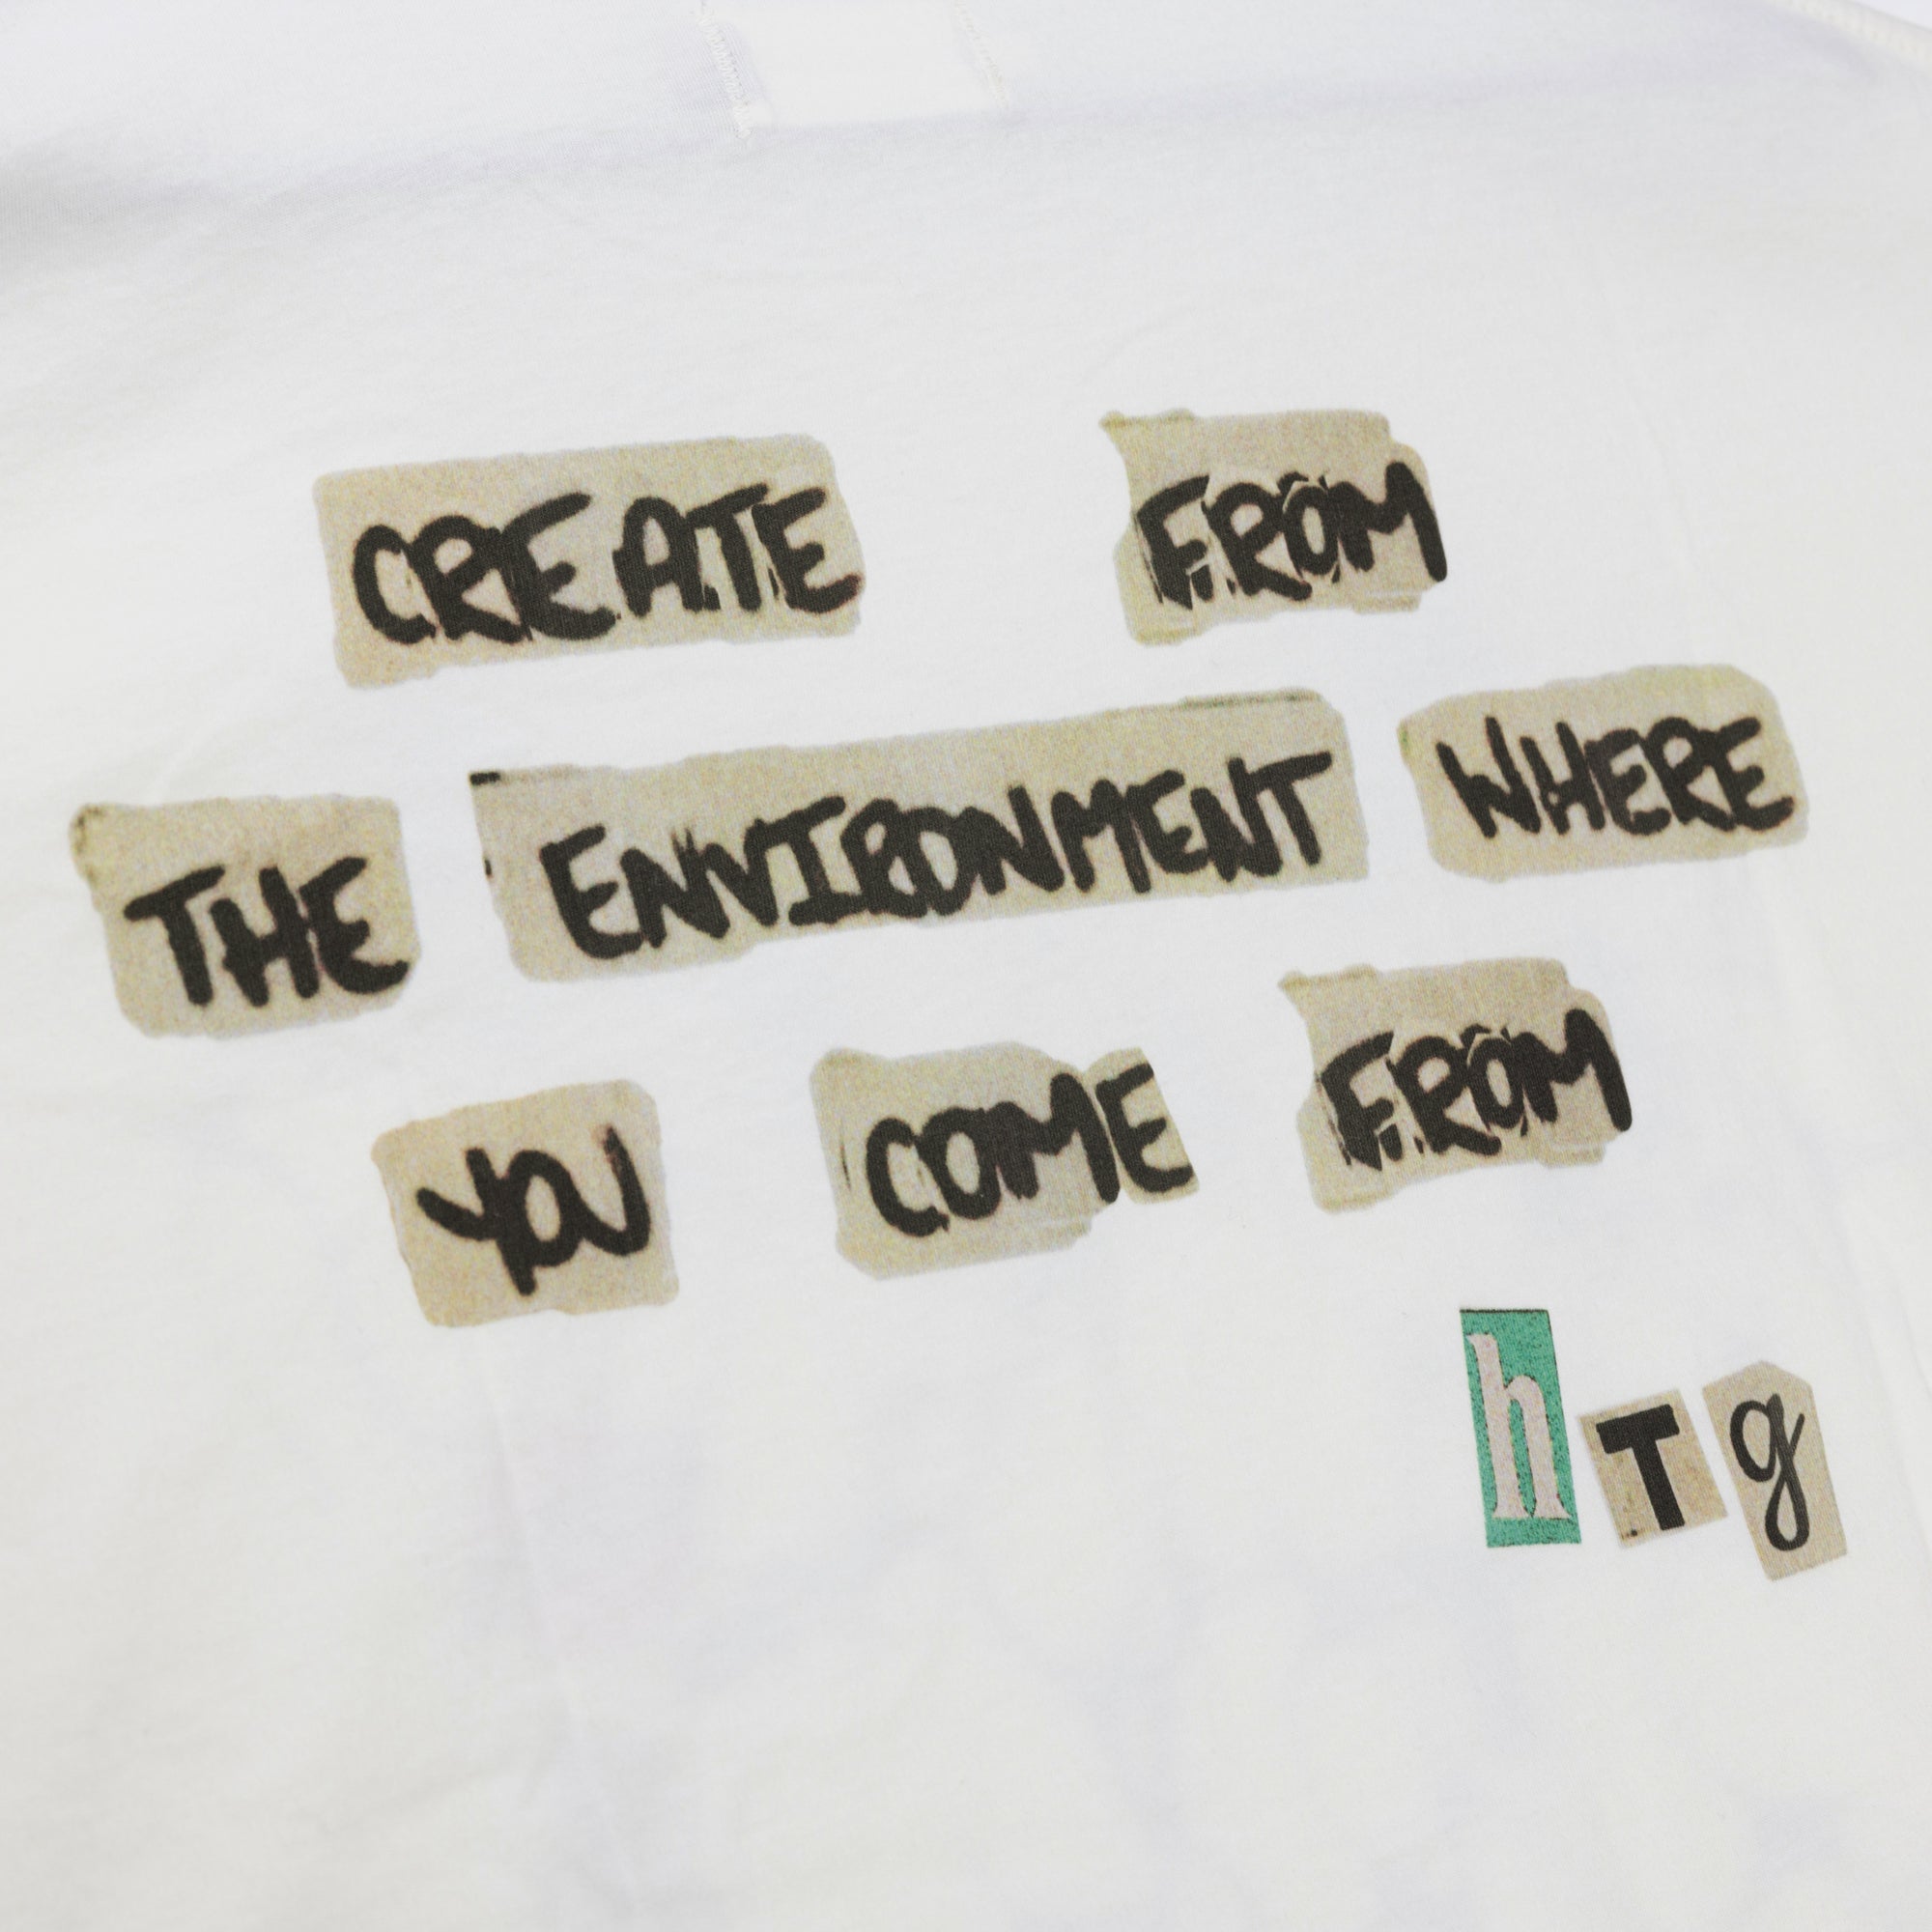 CREATE FROM
THE ENVIRONMENT WHERE
YOU COME FROM
hTg